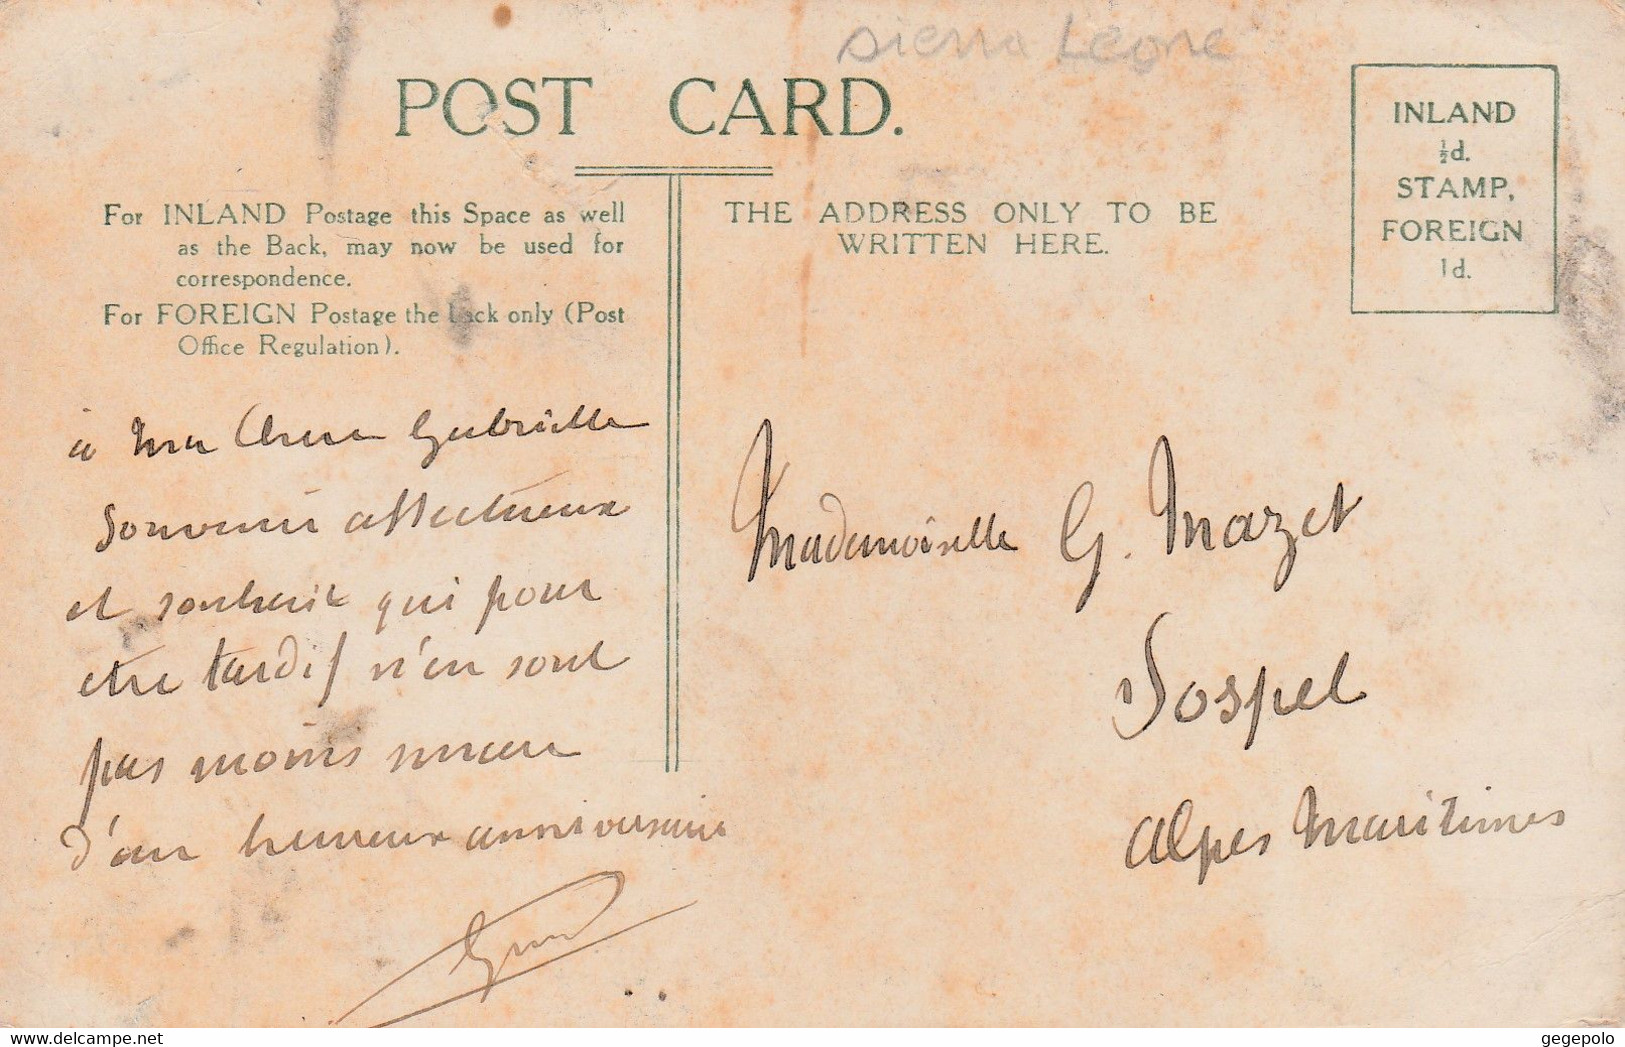 Sierra Leone
POST CARD.
For INLAND Postage this Space as well
as the Back, may now be used for
correspondence.
For FOREIGN Postage the back only (Post
Office Regulation).
THE ADDRESS ONLY TO BE
WRITTEN HERE.
INLAND
½d.
STAMP,
FOREIGN
1d.
à ma Chere Gabrielle
souvenir affectueux
et souhait qui pour
etre tardif n'en sont
pas moins
d'un heureux anniversaire
Mademoiselle G. Mazet
Sospel
Alpes Maritimes
delcampe.net
gegepolo